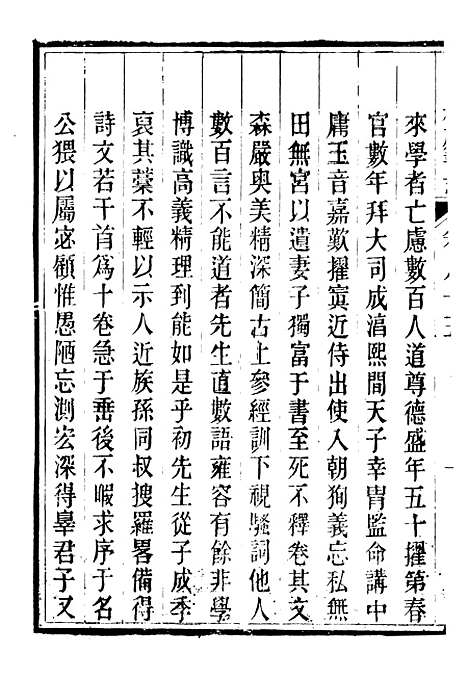 來學者亡慮數百人道尊德盛年五十擢第春
官數年拜大司成淳熙間天子幸胄監命講中
庸玉音嘉歎擢寘近侍出使入朝狥義忘私無
田無宮以遺妻子獨富于書至死不釋卷其文
森嚴奥美精深簡古上參經訓下視騷詞他人
數百言不能道者先生直數語雍容有餘非學
博識高義精理到能如是乎初先生從子成季
裒其藁不輕以示人近族孫同叔搜羅畧備得
詩文若干首爲十卷急于垂後不暇求序于名
公猥以屬宓顧惟愚陋忘測宏深得辠君子又